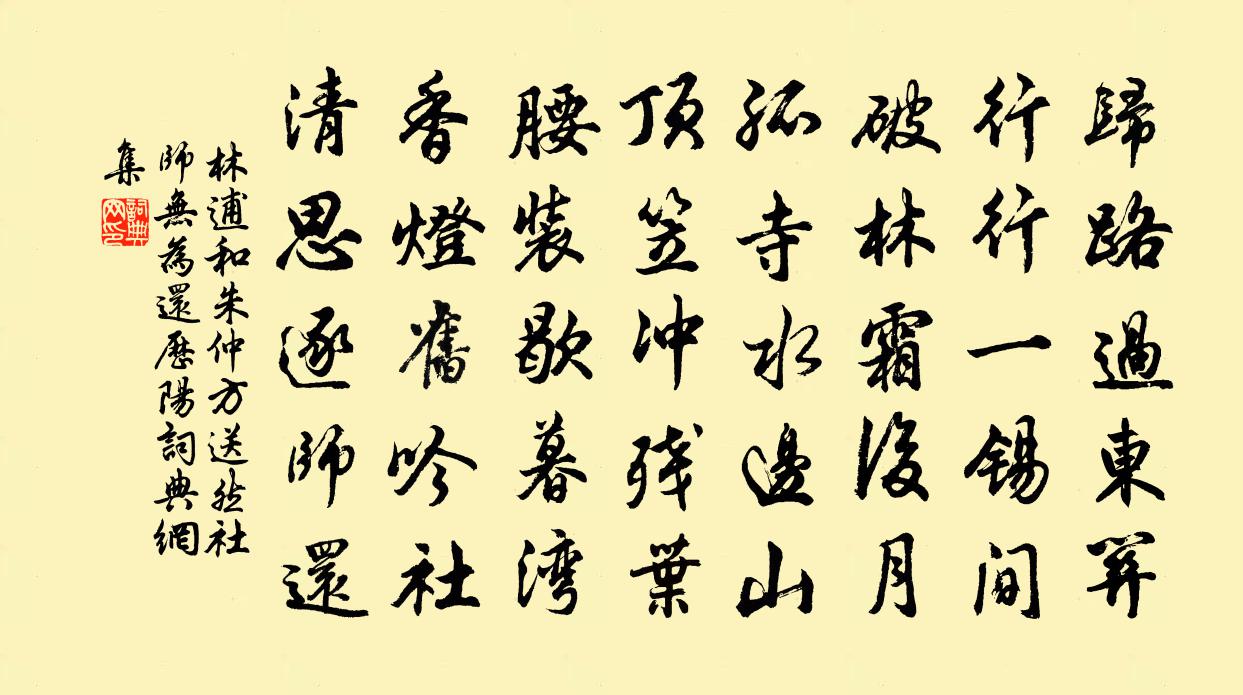 歸路過東關
行行一錫閒
破林霜後月
孤寺水邊山
頂笠冲殘葉
腰裝歇暮湾
香燈舊吟社
清思逐師還
林逋和朱仲方送然社
師無為還歷陽詞典網
集
詞典网印